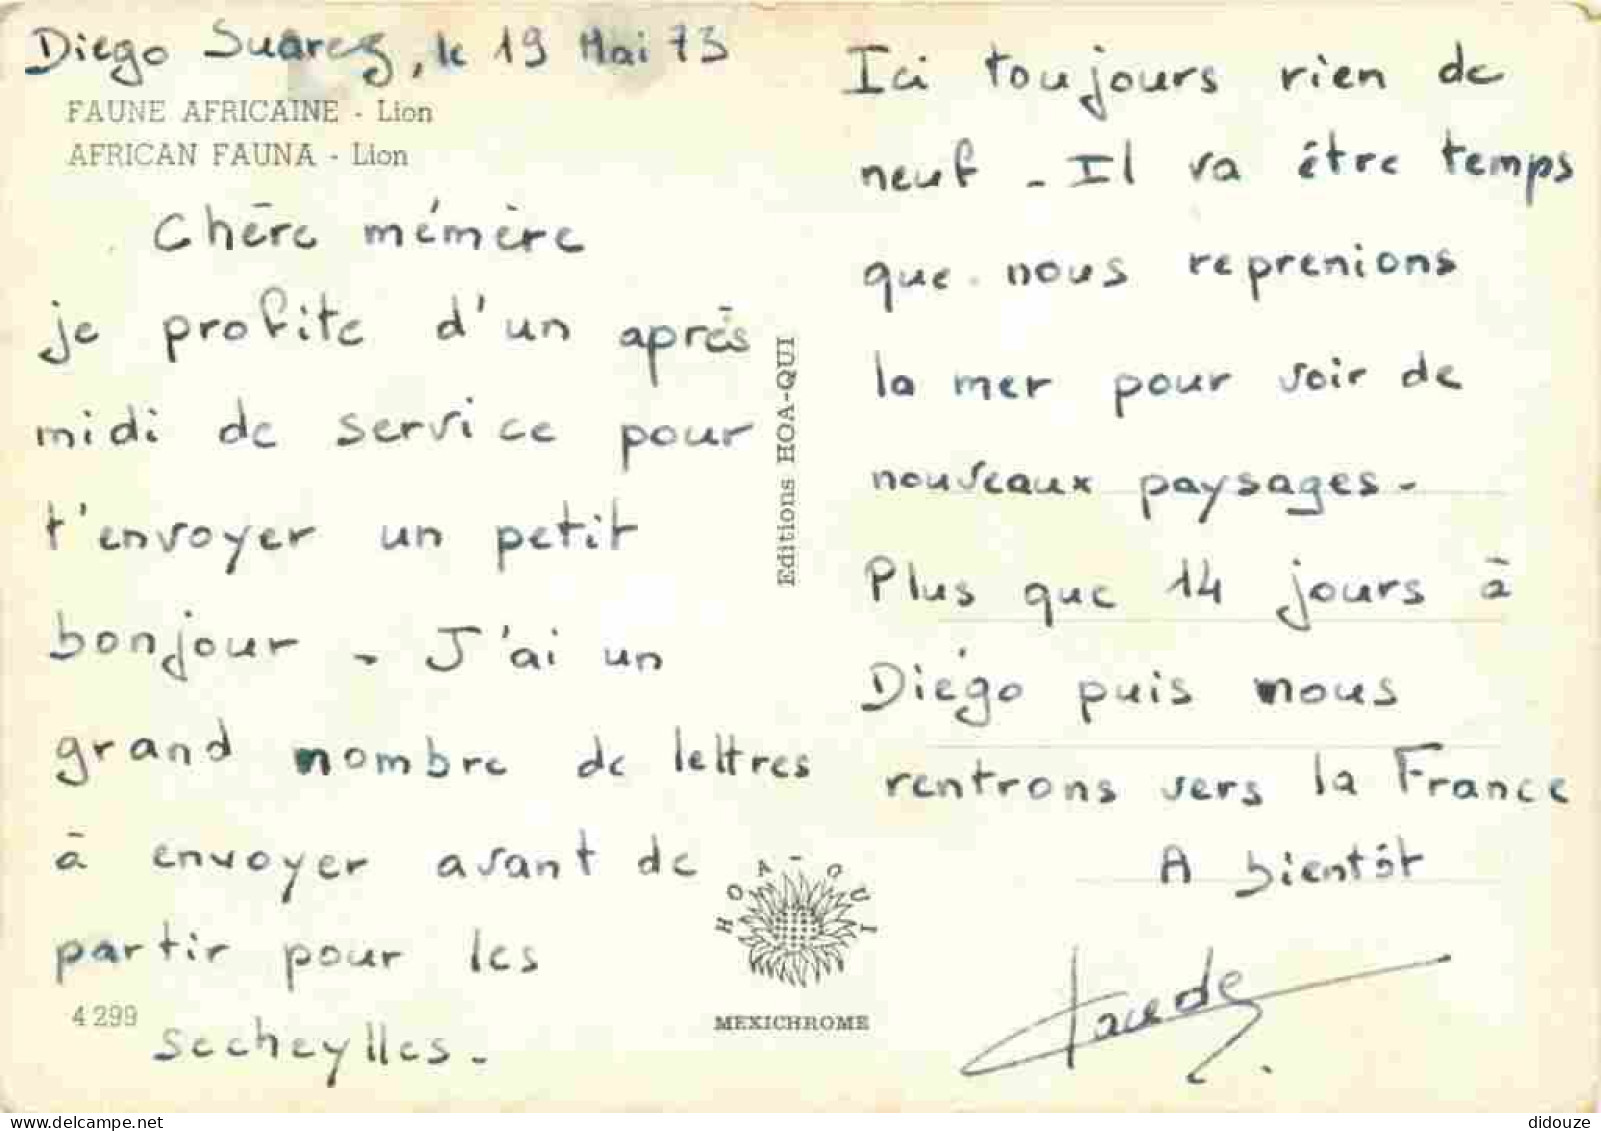 Diego Suarez, le 19 Mai 73
FAUNE AFRICAINE - Lion
AFRICAN FAUNA - Lion
Chère mémère
je profite d'un après
midi de service pour
t'envoyer un petit
bonjour - J'ai un
grand nombre de lettres
à envoyer avant de
partir pour les
Secheylles -
4 299
Editions HOA-QUI
HOA-QUI
MEXICHROME
Ici toujours rien de
neuf - Il va être temps
que nous reprenions
la mer pour voir de
nouveaux paysages -
Plus que 14 jours à
Diégo puis nous
rentrons vers la France
A bientôt
Claude
delcampe.net
didouze